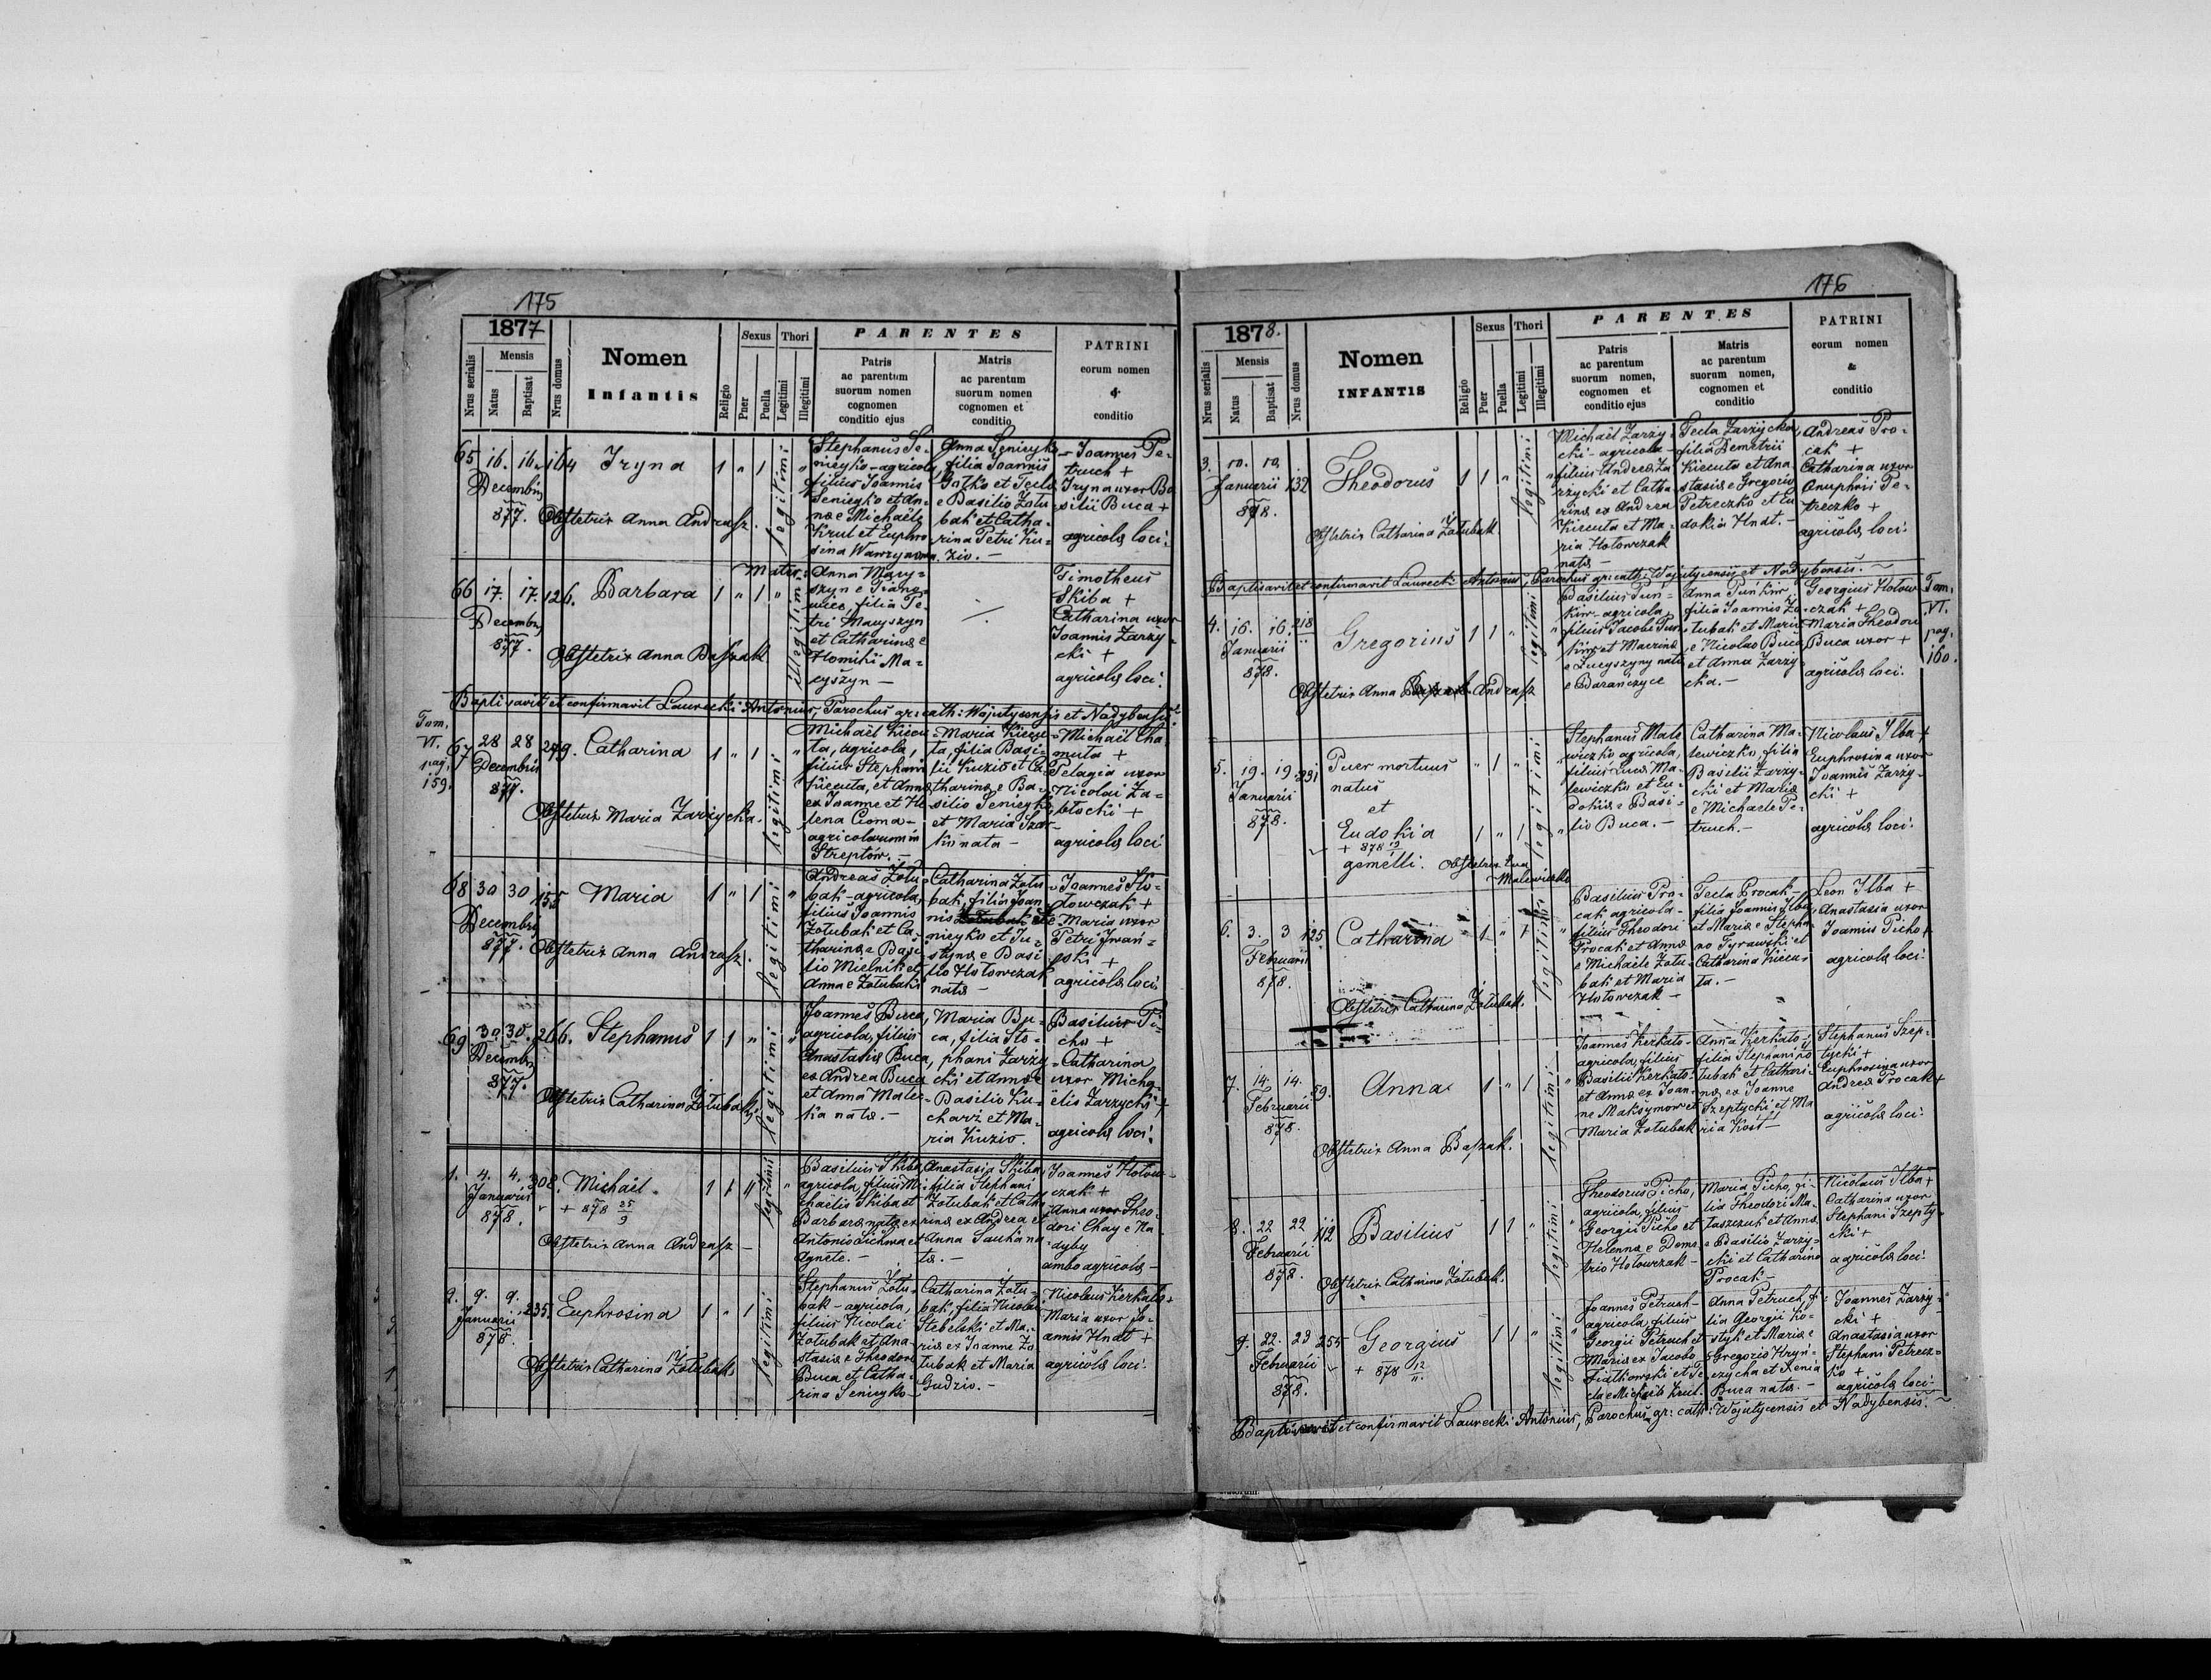 175
1877
Nrus serialis
Mensis
Natus
Baptisat
Nrus domus
Nomen
Infantis
Religio
Sexus
Puer
Puella
Thori
Legitimi
Illegitimi
PARENTES
Patris
ac parentum
suorum nomen
cognomen
conditio ejus
Matris
ac parentum
suorum nomen
cognomen et
conditio
PATRINI
eorum nomen
&
conditio
65 16. 16. 164 Iryna 1 " 1 legitimi "
Decembris
877. Obstetrix Anna Andrasz.
Stephanus Se-
nieyko - agricola,
filius Joannis
Senieyko et An-
na e Michaele
Krul et Euphro
sina
Anna Senieyko
filia Joannis
et Tecla
e Basilio Żołu
bak et Catha-
rina Petri Ku-
zio. -
Joannes Pe-
truch +
Iryna uxor Ba
silii Buca +
agricolæ loci.
66 17. 17. 126. Barbara 1 " 1 " illegitim.
Decembris
877.
Obstetrix Anna Baszak
Mater:
Anna Macy-
szyn e
filia Pe-
tri Macyszyn
et Catharina e
Ma-
cyszyn -
Timotheus
Skiba +
Catharina uxor
Joannis Zarzy-
cki +
agricolæ loci.
Baptisavit et confirmavit Laurecki Antonius, Parochus gr: cath: Wojutycensis et Nadybensis.
Tom.
VI.
pag.
159.
67 28 28 249. Catharina 1 " 1 legitimi "
Decembris
877.
Obstetrix Maria Zarzycka.
Michaël Kiecu
ta, agricola,
filius Stephani
Kiecuta, et Anna
ex Joanne et He
lena Cioma -
agricolarum in
Streptów. -
Maria Kiecu-
ta, filia Basi-
lii Kuzio et Ca
tharina e Ba-
silio Senieyko
et Maria
nata -
Michaël
+
Pelagia uxor
Nicolai Za-
błocki +
agricolæ loci
68 30 30 155 Maria 1 " 1 legitimi "
Decembris
877. Obstetrix Anna Andrasz.
Andreas Żołu
bak - agricola,
filius Joannis
Żołubak et Ca-
tharina e Basi
lio Mielnik et
Anna e Żołubak
Catharina Żołu
bak, filia Joan
nis
nieyko et Ju-
styna e Basi
lio Hołowczak
nata -
Joannes Ho-
łowczak +
Maria uxor
Petri Jwań-
ski +
agricolæ loci
69 30. 30. 266. Stephanus 1 1 " legitimi "
Decembris
877.
Obstetrix Catharina Żołubak
Joannes Buca,
agricola, filius
Anastasia Buca,
ex Andrea Buca
et Anna Małec-
ka nata. -
Maria Bu-
ca, filia Ste-
phani Zarzy-
cki et Anna e
Basilio Ku-
charz et Ma-
ria Kuzio.
Basilius Pi-
cho +
Catharina
uxor Micha-
ëlis Zarzycki +
agricolæ loci.
1. 4. 4. 308. Michaël. 1 1 " legitimi "
Januarii + 878 25/9
878.
Obstetrix Anna Andrasz -
Basilius Skiba
agricola, filius Mi
chaëlis Skiba et
Barbara nata ex
Antonio et
Agnete. -
Anastasia Skiba
filia Stephani
Żołubak et Cath
rina ex Andrea et
Anna na
ta. -
Joannes Hołow-
czak +
Anna uxor Theo-
dori Chay e Na-
dyby
ambo agricolæ -
2. 9. 9. 235. Euphrosina 1 " 1 legitimi
Januarii
878.
Obstetrix Catharina Żołubak
Stephanus Żołu-
bak - agricola,
filius Nicolai
Żołubak et Ana-
stasia e Theodoro
Buca et Catha-
rina Senieyko -
Catharina Żołu-
bak, filia Nicolai
Stebelski et Ma-
ria ex Joanne Żo
łubak et Maria
Gudzio. -
Nicolaus Kerkało +
Maria uxor Jo-
annis Hnat +
agricolæ loci.
176
1878.
Nrus serialis
Mensis
Natus
Baptisat
Nrus domus
Nomen
INFANTIS
Religio
Sexus
Puer
Puella
Thori
Legitimi
Illegitimi
PARENTES
Patris
ac parentum
suorum nomen,
cognomen et
conditio ejus
Matris
ac parentum
suorum nomen,
cognomen et
conditio
PATRINI
eorum nomen
&
conditio
3. 10. 10. 132 Theodorus 1 1 " legitimi "
Januarii
878.
Obstetrix Catharina Żołubak
Michaël Zarzy
cki - agricola -
filius Andrea Za
rzycki et Catha-
rina ex Andrea
Kiecuta et Ma-
ria Hołowczak
nata -
Tecla Zarzycka
filia Demetrii
Kiecuta et Ana
stasia e Gregorio
Petreczko et Eu
dokia Hnat. -
Andreas Pro-
cak +
Catharina uxor
Onuphrii Pe-
treczko +
agricolæ loci.
Baptisavit et confirmavit Laurecki Antonius, Parochus gr: cath: Wojutycensis et Nadybensis. ~
4. 16. 16. 218 Gregorius 1 1 " legitimi "
Januarii
878.
Obstetrix Anna Andrasz
Basilius Puń-
kiw - agricola,
filius Jacobi Puń
kiw et Maria
nata
e Barańczyce
Anna Puńkiw
filia Joannis Żo-
łubak et Maria
e Nicolao Buca
et Anna Zarzy-
cka. -
Georgius Hołow
czak +
Maria Theodori
Buca uxor +
agricolæ loci.
Tom.
VI.
pag.
160.
5. 19. 19 231 Puer mortuus " 1 " legitimi
Januarii natus
878. et
Eudokia 1 " 1 "
+ 878 19
gemelli. Obstetrix Eva
Malewiczko
Stephanus Male
wiczko agricola,
filius Luca Ma-
lewiczko et Eu-
dokia e Basi-
lio Buca. -
Catharina Ma-
lewiczko, filia
Basilii Zarzy-
cki et Maria
e Michaele Pe-
truch. -
Nicolaus Ilba +
Euphrosina uxor
Joannis Zarzy-
cki +
agricolæ loci.
6. 3. 3 125 Catharina 1 " 1 legitimi "
Februarii
878.
Obstetrix Catharina Żołubak.
Basilius Pro-
cak agricola -
filius Theodori
Procak et Anna
e Michaële Żołu-
bak et Maria
Hołowczak -
Tecla Procak -
filia Joannis Ilba
et Maria e Stepha
no Tyrawski et
Catharina Kiecu-
ta. -
Leon Ilba +
Anastasia uxor
Joannis Picho +
agricolæ loci.
7. 14. 14. 59. Anna 1 " 1 legitimi "
Februarii
878.
Obstetrix Anna Baszak.
Joannes Kerkało -
agricola, filius
Basilii Kerkało
et Anna ex Joan-
ne Maksymow et
Maria Żołubak
Anna Kerkało -
filia Stephani Żo
łubak et Cathari-
na ex Joanne
Szeptycki et Ma
ria Kość -
Stephanus Szep-
tycki +
Euphrosina uxor
Andrea Procak +
agricolæ loci.
8. 22 22 112 Basilius 1 1 " legitimi "
Februarii
878.
Obstetrix Catharina Żołubak.
Theodorus Picho,
agricola, filius
Georgii Picho et
Helenna e Deme-
trio Hołowczak -
Maria Picho, fi-
lia Theodori Ma-
taszczuk et Anna
e Basilio Zarzy-
cki et Catharina
Procak -
Nicolaus Ilba +
Catharina uxor
Stephani Szepty-
cki +
agricolæ loci.
9. 22. 23 255 Georgius 1 1 " legitimi "
Februarii + 878 12/11.
878.
Joannes Petruch -
agricola, filius
Georgii Petruch et
Maria ex Jacobo
Fiałkowski et Te
cla e Michaële Krul.
Anna Petruch, fi-
lia Georgii Ko-
styk et Maria e
Gregorio Hryń-
czycha et Xenia
Buca nata. -
Joannes Zarzy-
cki +
Anastasia uxor
Stephani Petrecz-
ko +
agricolæ loci.
Baptisavit et confirmavit Laurecki Antonius, Parochus gr: cath: Wojutycensis et Nadybensis. ~